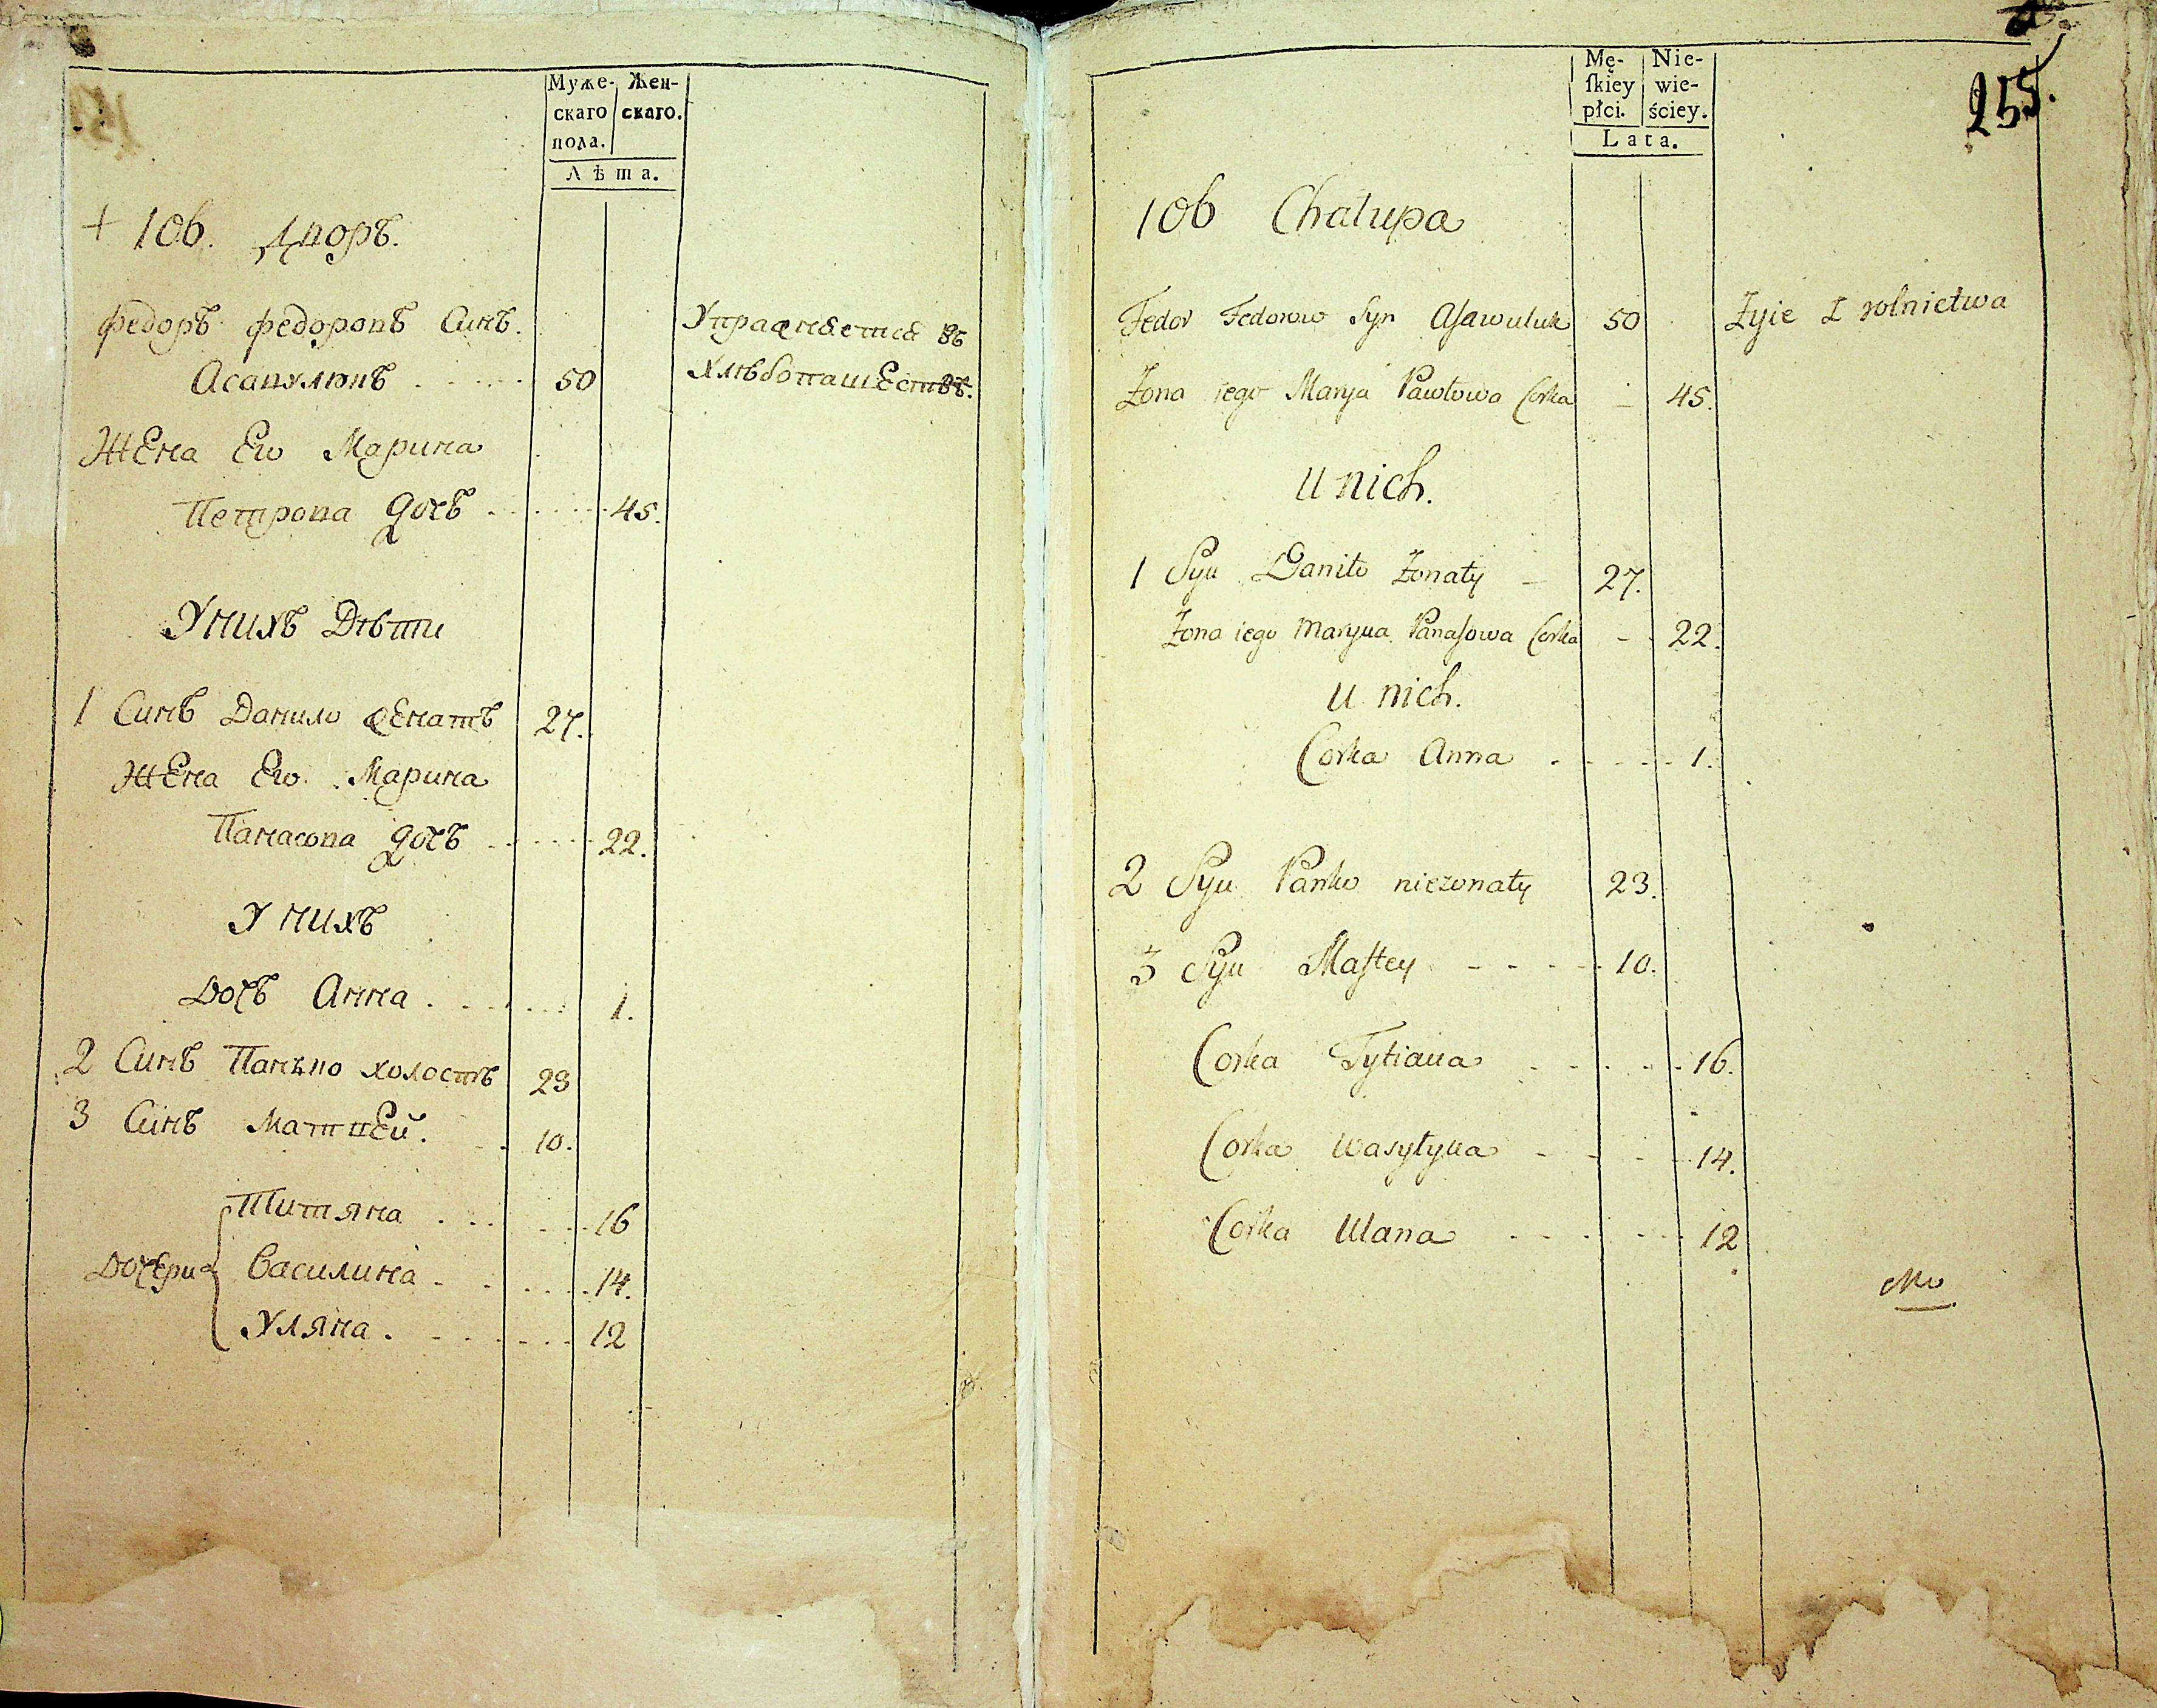 Муже-
скаго
пола.
Жен-
скаго.
Лѣта.
+ 106. Дворъ.
Федоръ Федоровъ Синъ.
Асавулювъ . . . . . 50
Упражнѣетца въ
Хлѣбопашествѣ.
Жена Его Марина
Петрова дочь . . . . . . 45.
У нихъ Дѣти
1 Синъ Данило женатъ 27.
Жена Его Марина
Панасова дочь . . . . . 22.
У нихъ
Дочь Анна . . . . . . 1.
2 Синъ Панько холостъ 23
3 Синъ Матвей. . . 10.
Дочери
Титяна . . . . . . 16
Василина . . . . . . 14.
Уляна . . . . . . 12
255.
Mę-
ſkiey
płci.
Nie-
wie-
ściey.
Lata.
106 Chałupa
Fedor Fedorow Syn Aſawuluk 50 Żyie z rolnictwa
Żona iego Marya Pawłowa Corka – 45.
U nich.
1 Syn Daniło Żonaty – 27.
Żona iego Maryna Panaſowa Corka – – 22.
u nich.
Corka Anna . . . . . 1.
2 Syn Pańko nieżonaty 23.
3 Syn Maſtey - - - - 10.
Corka Tytiana . . . . . 16.
Corka Wasyłyna - - - - 14.
Corka Ulana . . . . . 12